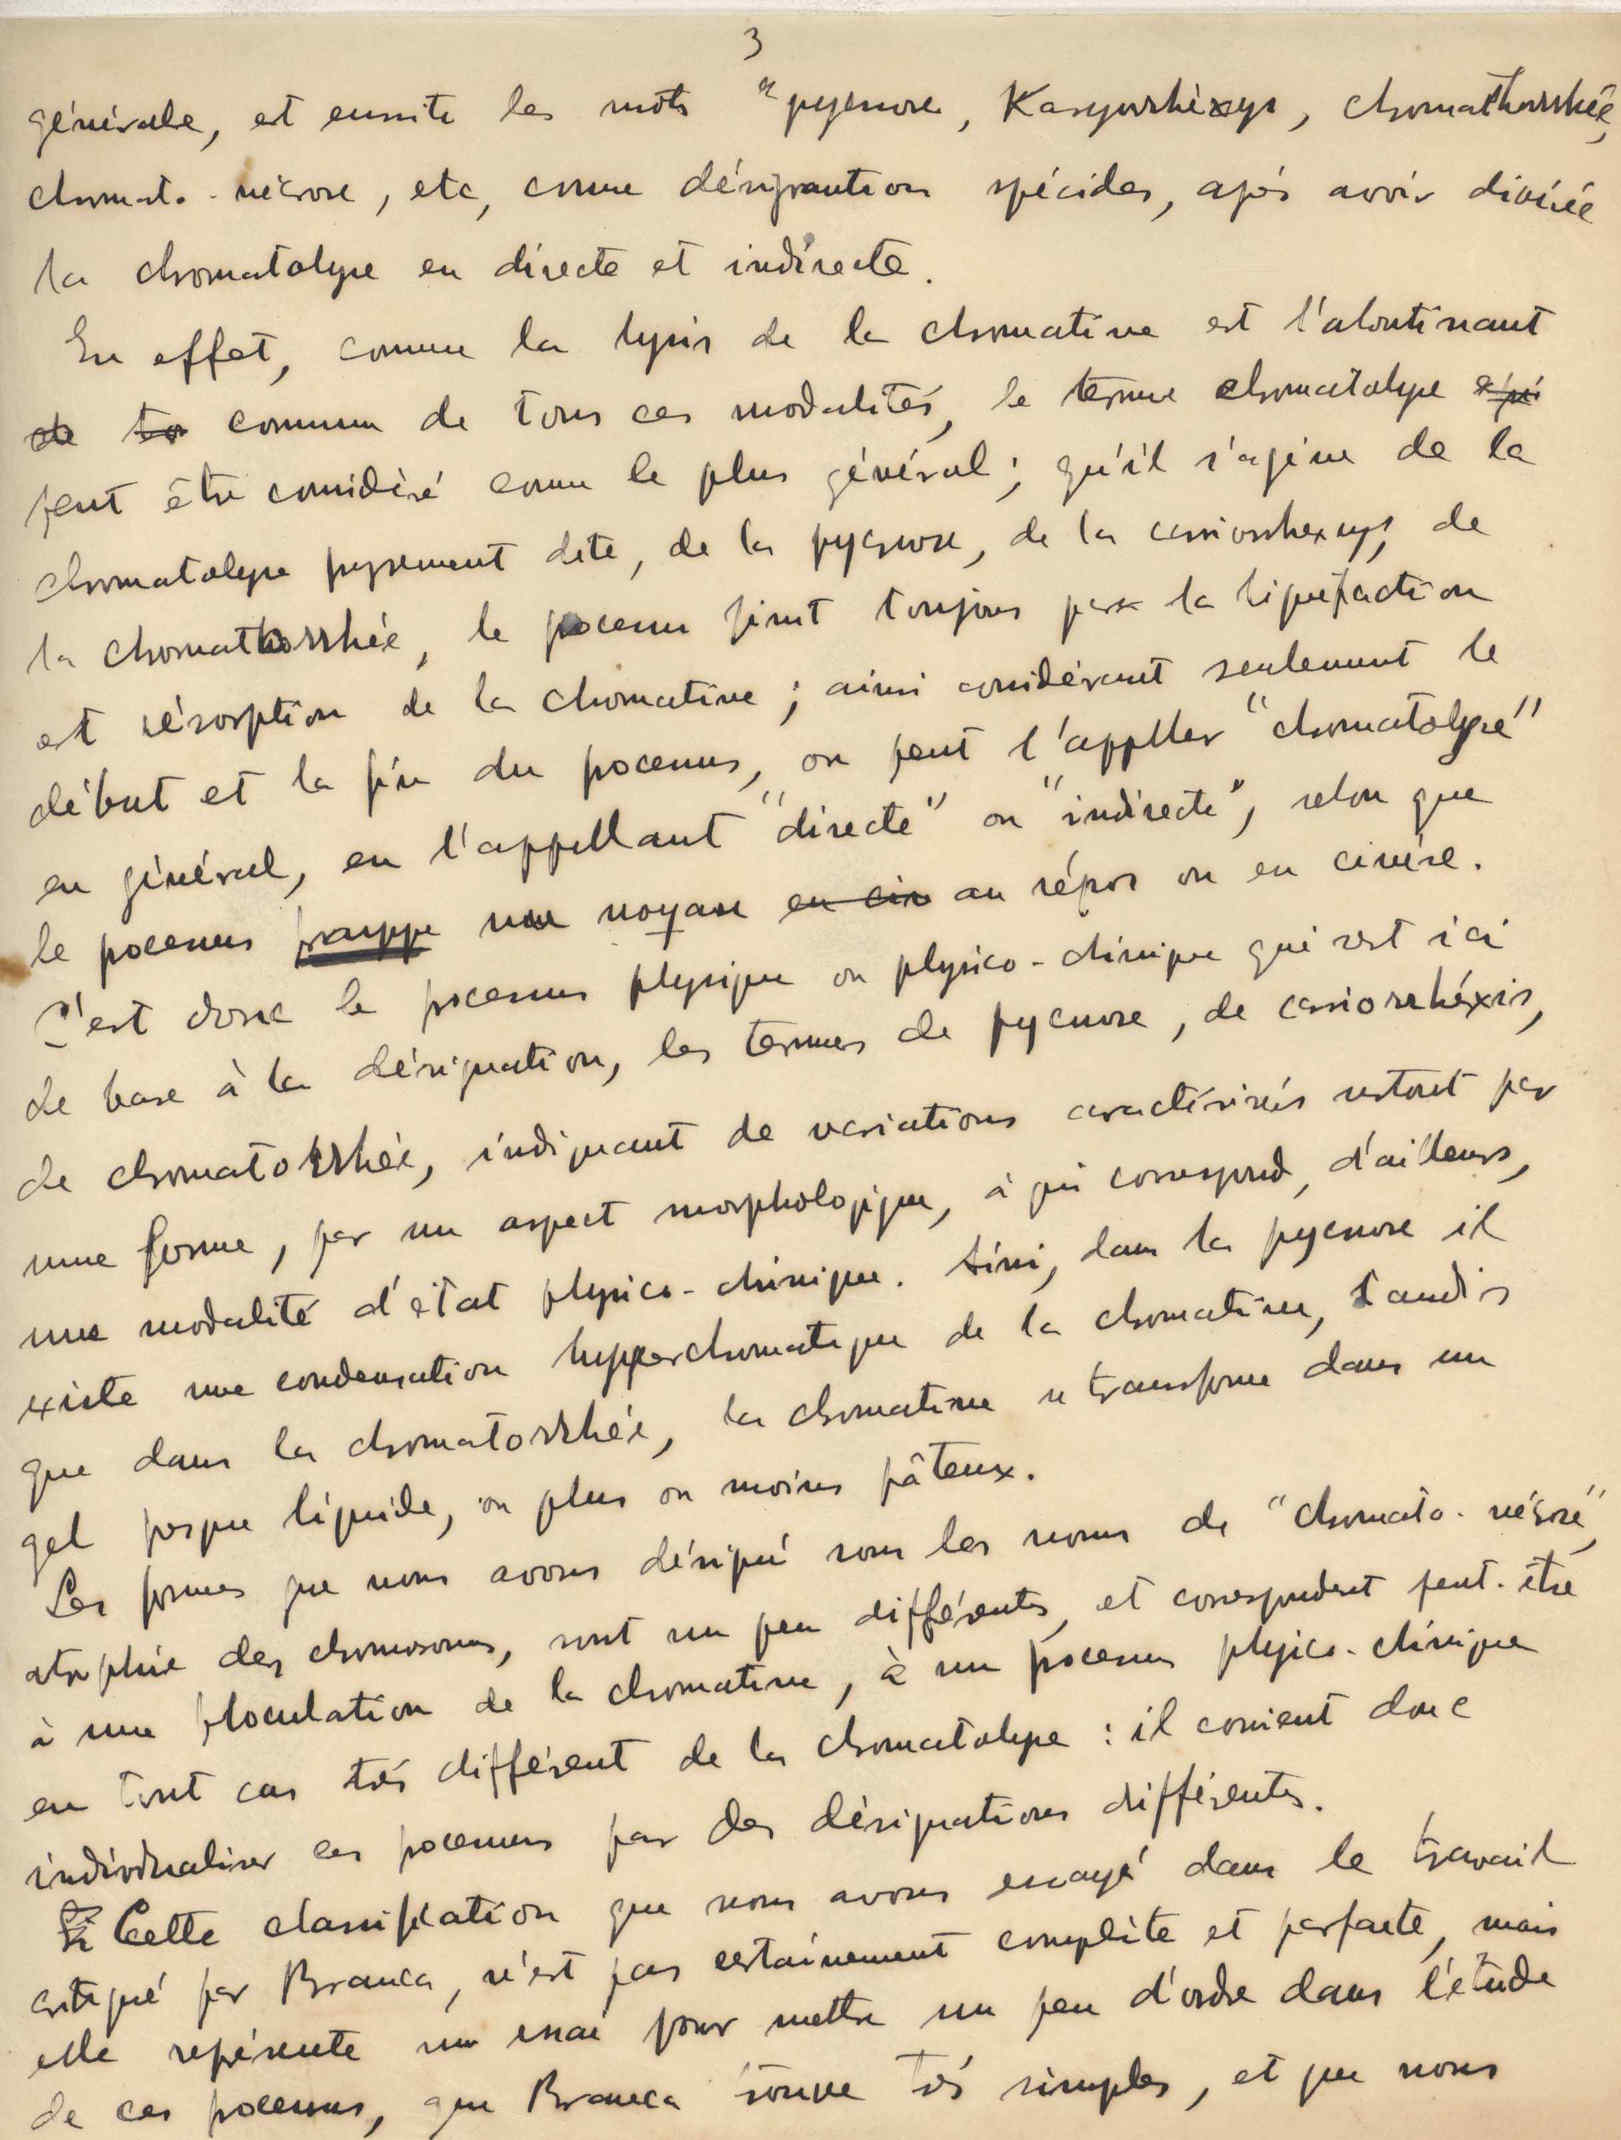 3
générale, et ensuite les mots "pycnose, Karyorrhéxys, chromathorrhée,
chromato-nécrose, etc, comme désignation spéciales, après avoir divisée
la chromatolyse en directe et indirecte.
En effet, comme la lysis de la chromatine est l'aboutinant
de to commun de tous ces modalités, le terme chromatolyse
peut être considéré comme le plus général; qu'il s'agisse de la
chromatolyse proprement dite, de la pycnose, de la cariorrhexys, de
la chromathorrhée, le processus finit toujours par la liquéfaction
et résorption de la chromatine; ainsi considérant seulement le
début et la fin du processus, on peut l'appller "chromatolyse"
en général, en l'appellant "directe" ou "indirecte", selon que
le processus frappe un noyau en cin au répos ou en cinèse.
C'est donc le processus physique ou physico-chimique qui est ici
de base à la désignation, les termes de pycnose, de cariorrhéxis,
de chromatorrhée, indiquant de variations caractérisés surtout par
une forme, par un aspect morphologique, à qui correspond, d'ailleurs,
une modalité d'état physico-chimique. Aini, dans la pycnose il
existe une condensation hyperchromatique de la chromatine, tandis
que dans la chromatorrhée, la chromatine se transforme dans un
gel presque liquide, ou plus ou moins pâteux.
Les formes que nous avons désigné sous les noms de "chromato-nécrose",
atrophie des chromosomes, sont un peu différentes, et correspondent peut-être
à une floculation de la chromatine, à un processus physico-chimique
en tout cas très différent de la chromatolyse : il convient donc
individualiser ces processus par des désignations différentes.
Cette classification que nous avons essayé dans le travail
critiqué par Branca, n'est pas certainement complète et parfaite, mais
elle représente un essai pour mettre un peu d'ordre dans l'étude
de ces processus, que Branca trouve très simples, et que nous